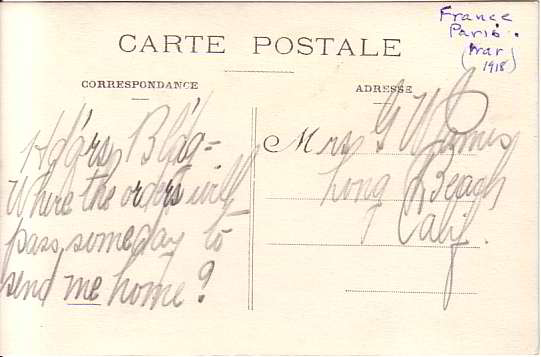 France
Paris.
(War
1918)
CARTE POSTALE
CORRESPONDANCE
ADRESSE
Hdq'rs Bld'g -
Where the orders will
pass, someday to
send me home?
Mrs G
Long Beach
Calif.